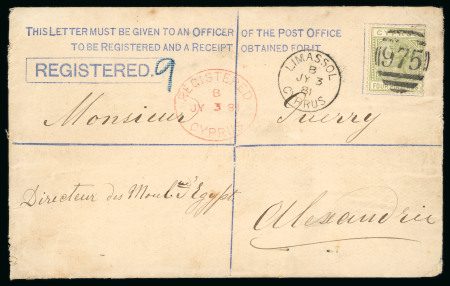 THIS LETTER MUST BE GIVEN TO AN OFFICER OF THE POST OFFICE
TO BE REGISTERED AND A RECEIPT OBTAINED FOR IT.
REGISTERED. 9
REGISTERED
B
JY 3 81
CYPRUS
LIMASSOL
B
JY 3
81
CYPRUS
975
Monsieur
Directeur des
Alexandrie